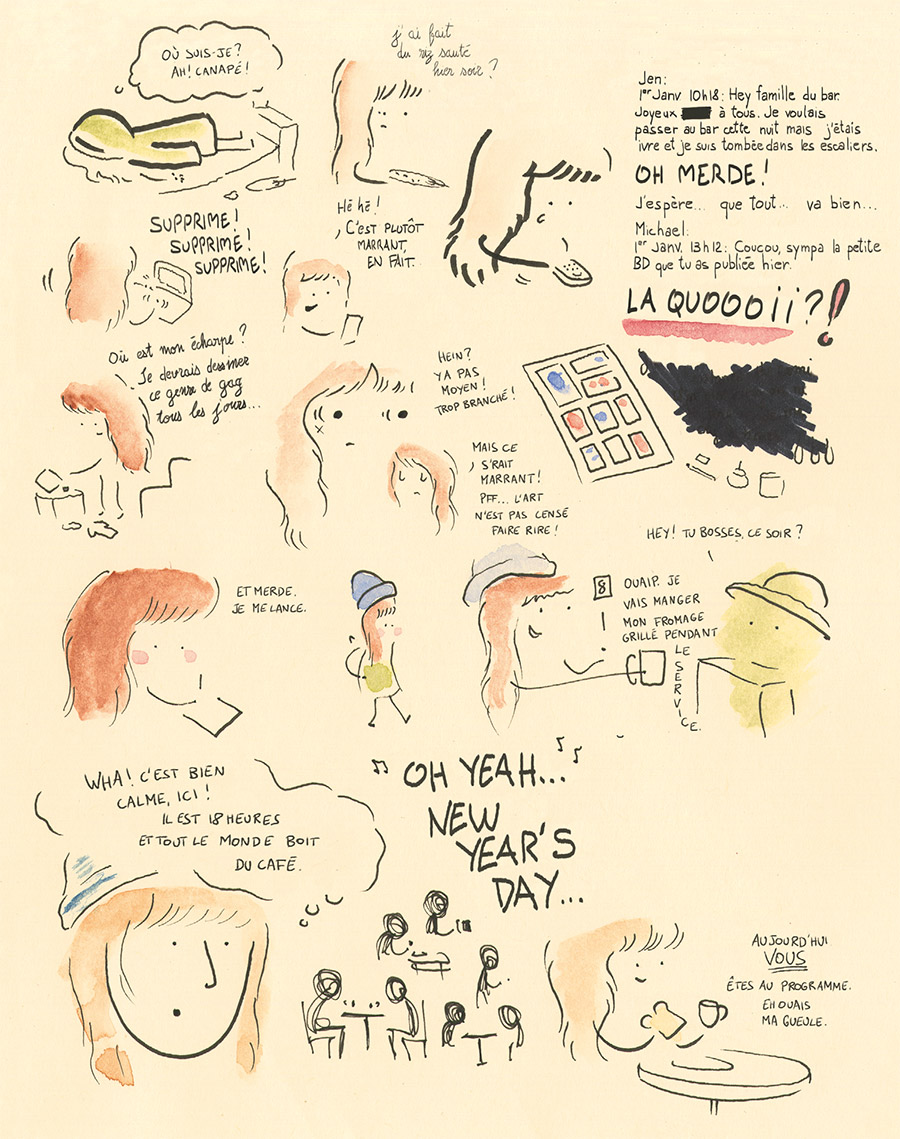 OÙ SUIS-JE?
AH! CANAPÉ!
j'ai fait
du riz sauté
hier soir?
Jen:
1er Janv 10h18: Hey famille du bar.
Joyeux à tous. Je voulais
passer au bar cette nuit mais j'étais
ivre et je suis tombée dans les escaliers.
OH MERDE!
J'espère... que tout... va bien...
Michael:
1er Janv. 13h12: Coucou, sympa la petite
BD que tu as publiée hier.
LA QUOOOiii?!
SUPPRIME!
SUPPRIME!
SUPPRIME!
Hé hé!
C'EST PLUTÔT
MARRANT,
EN FAIT.
Où est mon écharpe?
Je devrais dessiner
ce genre de gag
tous les jours...
HEIN?
Y A PAS
MOYEN!
TROP BRANCHÉ!
MAIS CE
S'RAIT
MARRANT!
PFF... L'ART
N'EST PAS CENSÉ
FAIRE RIRE!
ET MERDE.
JE ME LANCE.
HEY! TU BOSSES, CE SOIR?
OUAIP. JE
VAIS MANGER
MON FROMAGE
GRILLÉ PENDANT
LE
SERVICE.
WHA! C'EST BIEN
CALME, ICI!
IL EST 18 HEURES
ET TOUT LE MONDE BOIT
DU CAFÉ.
OH YEAH...
NEW
YEAR'S
DAY...
AUJOURD'HUI
VOUS
ÊTES AU PROGRAMME.
EH OUAIS
MA GUEULE.